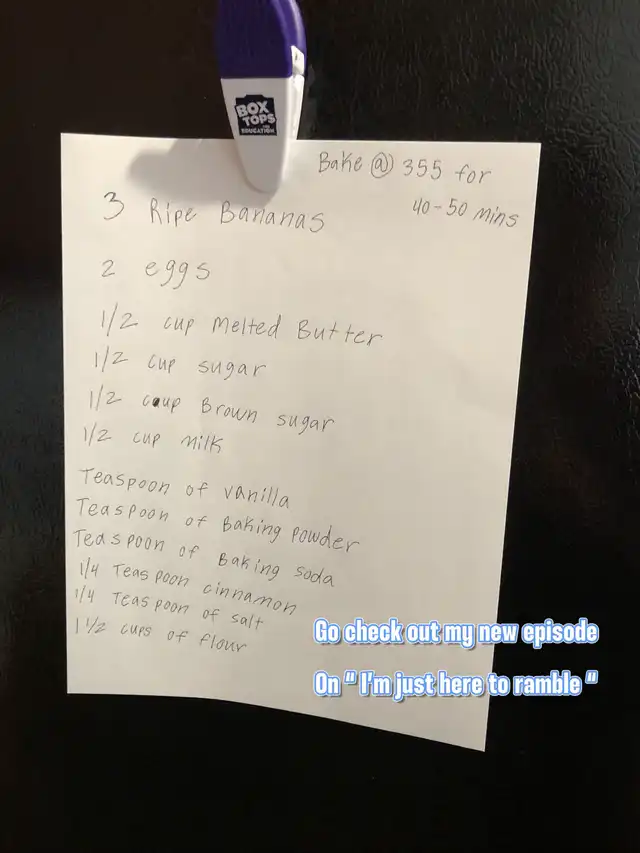 BOX
TOPS
FOR
EDUCATION
Bake @ 355 for
40-50 mins
3 Ripe Bananas
2 eggs
1/2 cup melted Butter
1/2 cup sugar
1/2 cup Brown sugar
1/2 cup milk
Teaspoon of vanilla
Teaspoon of Baking powder
Teaspoon of Baking soda
1/4 Teaspoon cinnamon
1/4 Teaspoon of salt
1 1/2 cups of flour
Go check out my new episode
On " I'm just here to ramble "